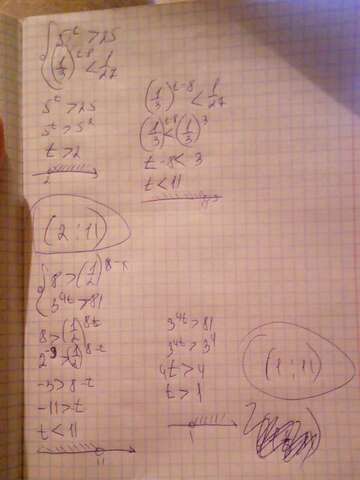 5^t > 25
(1/3)^(t-8) < 1/27
5^t > 25
5^t > 5^2
t > 2
2
(1/3)^(t-8) < 1/27
(1/3)^(t-8) < (1/3)^3
t-8 < 3
t < 11
11
(2 ; 11)
8 > (1/2)^(8-t)
3^(4t) > 81
8 > (1/2)^(8-t)
-3 > 8-t
-11 > t
t < 11
11
3^(4t) > 81
3^(4t) > 3^4
4t > 4
t > 1
1
(1 ; 11)